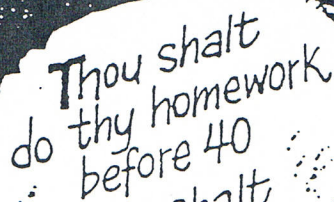 Thou shalt
do thy homework
before 40
shalt